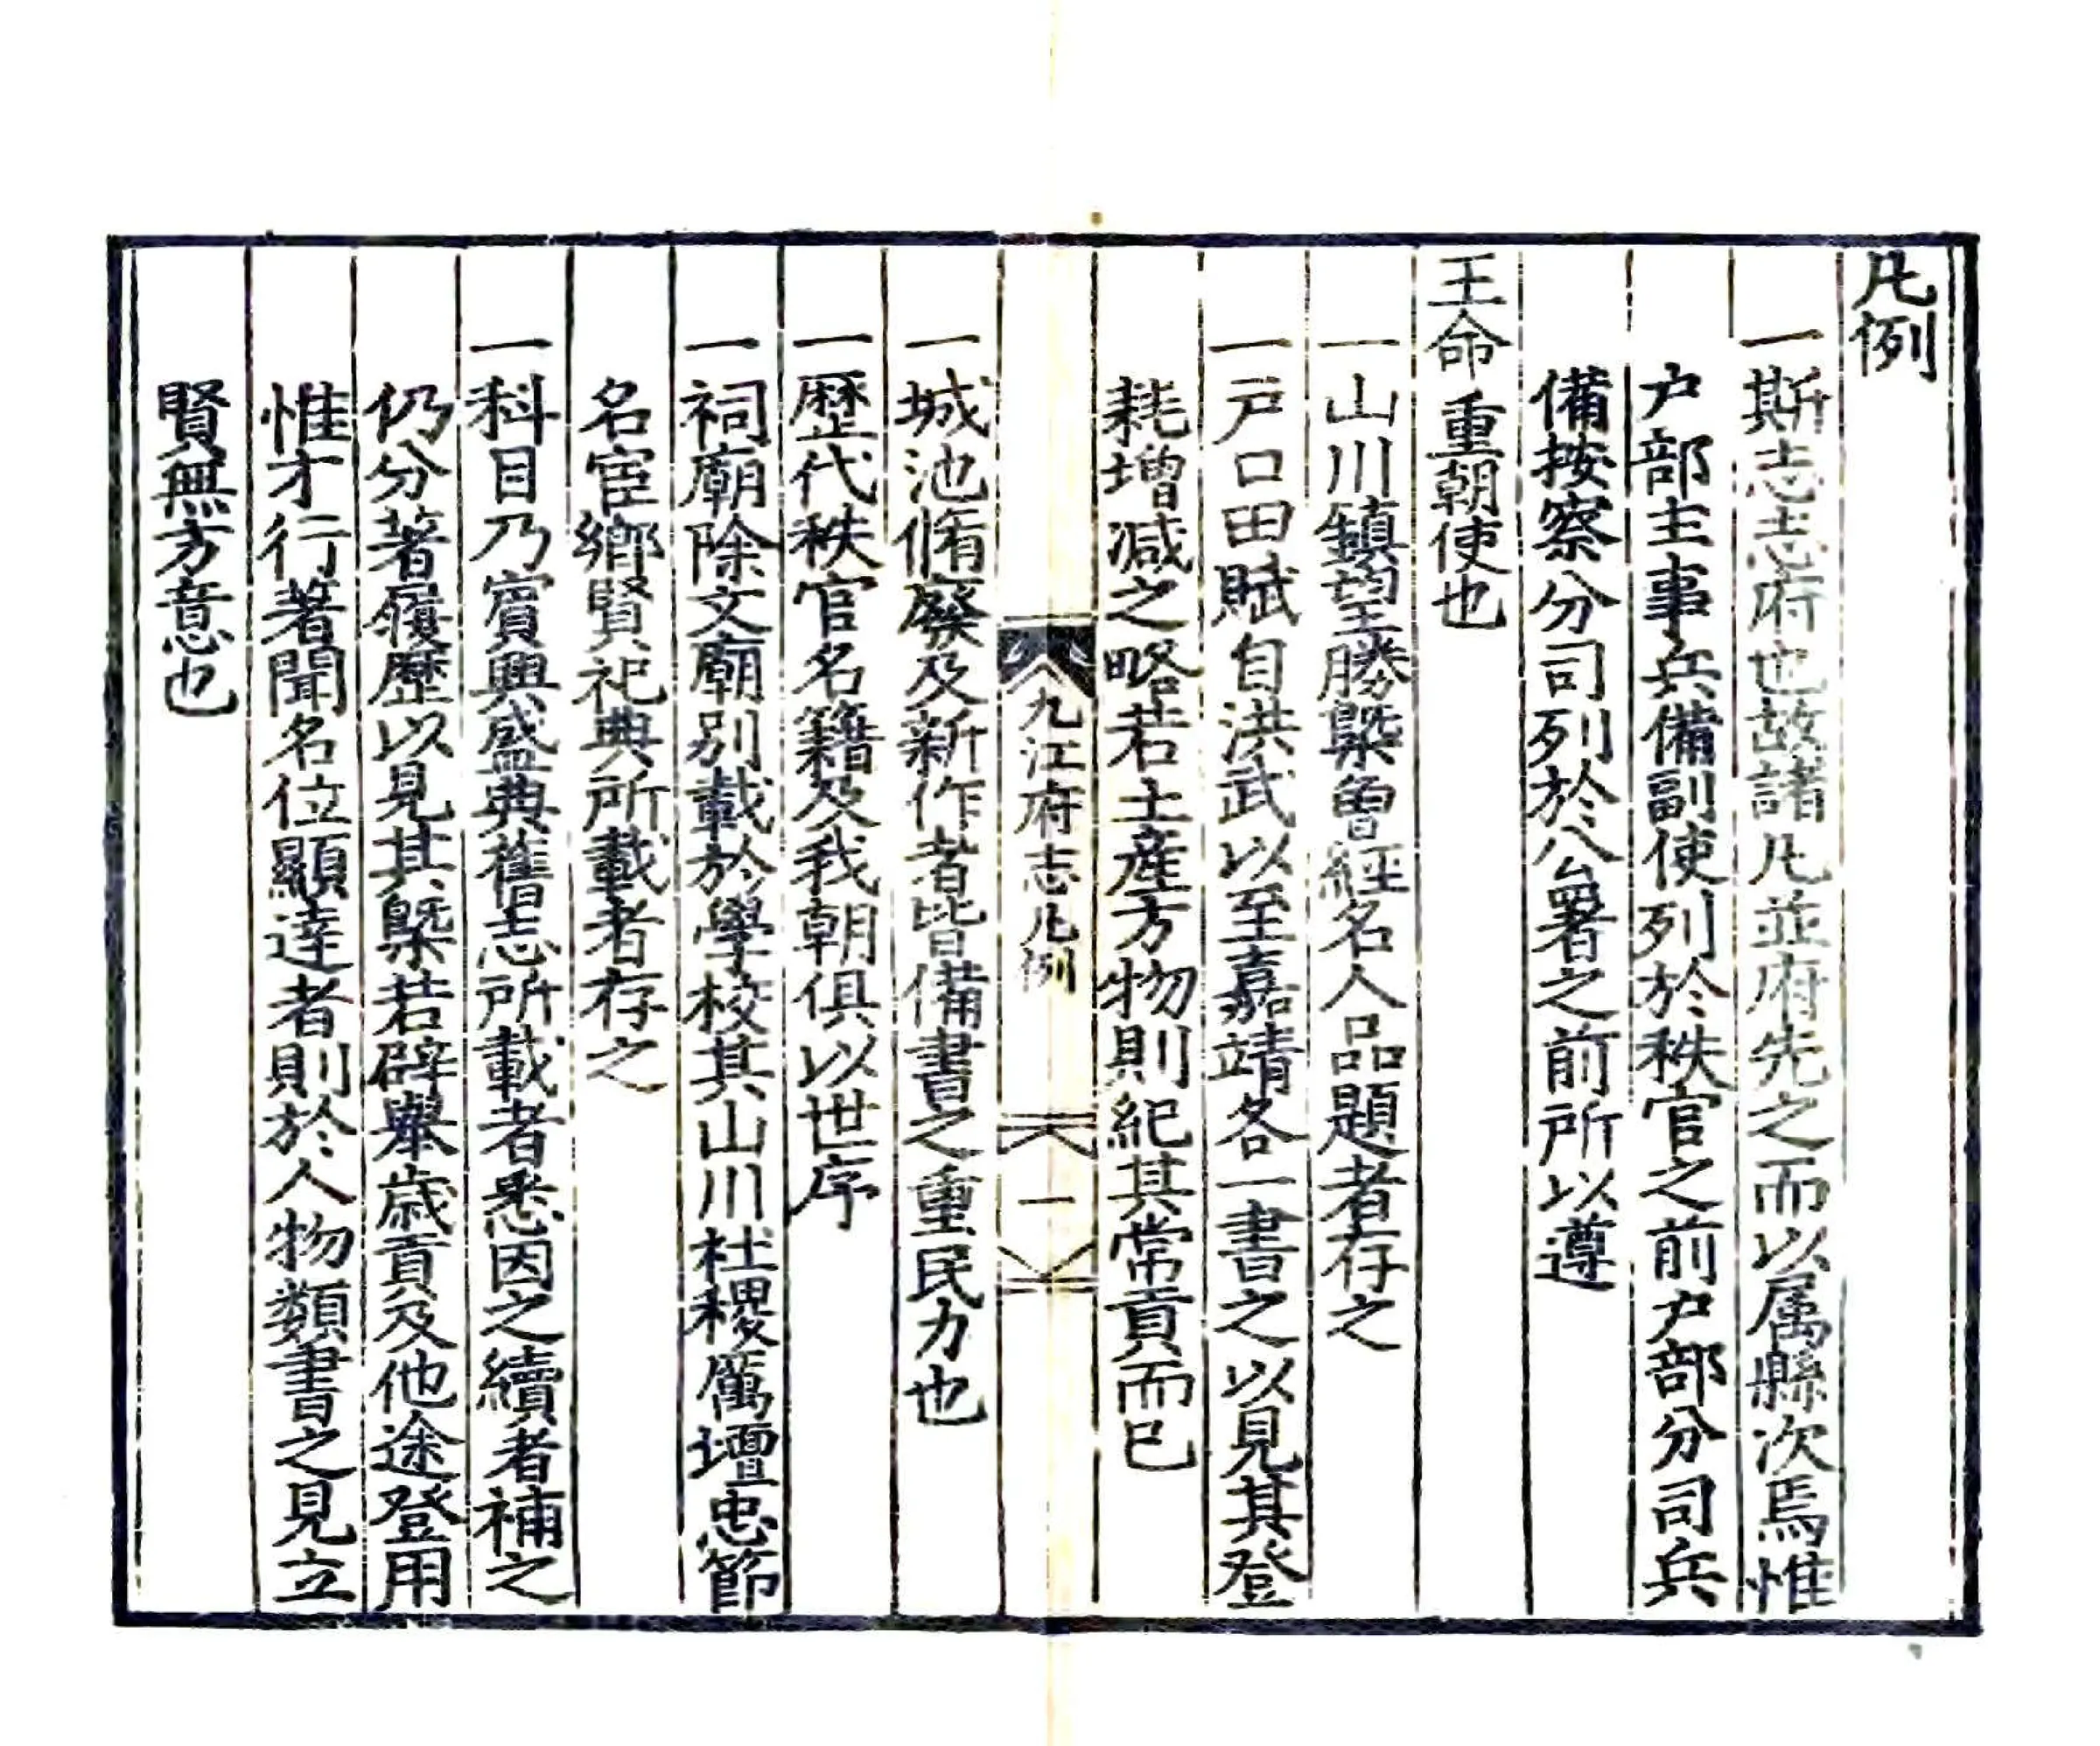 凡例
一斯志志府也故諸凡並府先之而以属縣次焉惟
户部主事兵備副使列於秩官之前户部分司兵
備按察分司列於公署之前所以遵
王命重朝使也
一山川鎮望勝槩曾經名人品題者存之
一戸口田賦自洪武以至嘉靖各一書之以見其登
耗增减之略若土産方物則紀其常貢而已
九江府志凡例
一
一城池脩廢及新作者皆備書之重民力也
一歷代秩官名籍及我朝俱以世序
一祠廟除文廟别載於學校其山川社稷厲壇忠節
名宦鄉賢祀典所載者存之
一科目乃賓興盛典舊志所載者悉因之續者補之
仍分著履歷以見其槩若辟舉歲貢及他途登用
惟才行著聞名位顯達者則於人物類書之見立
賢無方意也